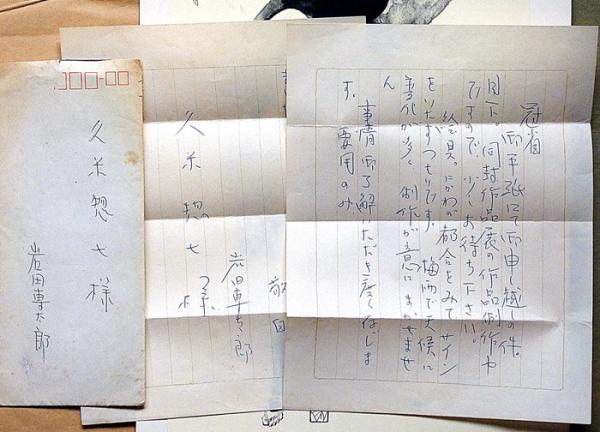 冠省
御手紙にて御申し越しの件。
目下、同封作品展の作品制作中
ですので、少しお待ち下さい。
絵具、にかわの都合をみてサイン
をいたすつもりです。梅雨で天候に
変化が多く制作が意にまかせませ
ん
事情御了解いただき度く存じま
す。要用のみ
岩田専太郎
久米惣七様
久米惣七様
岩田専太郎